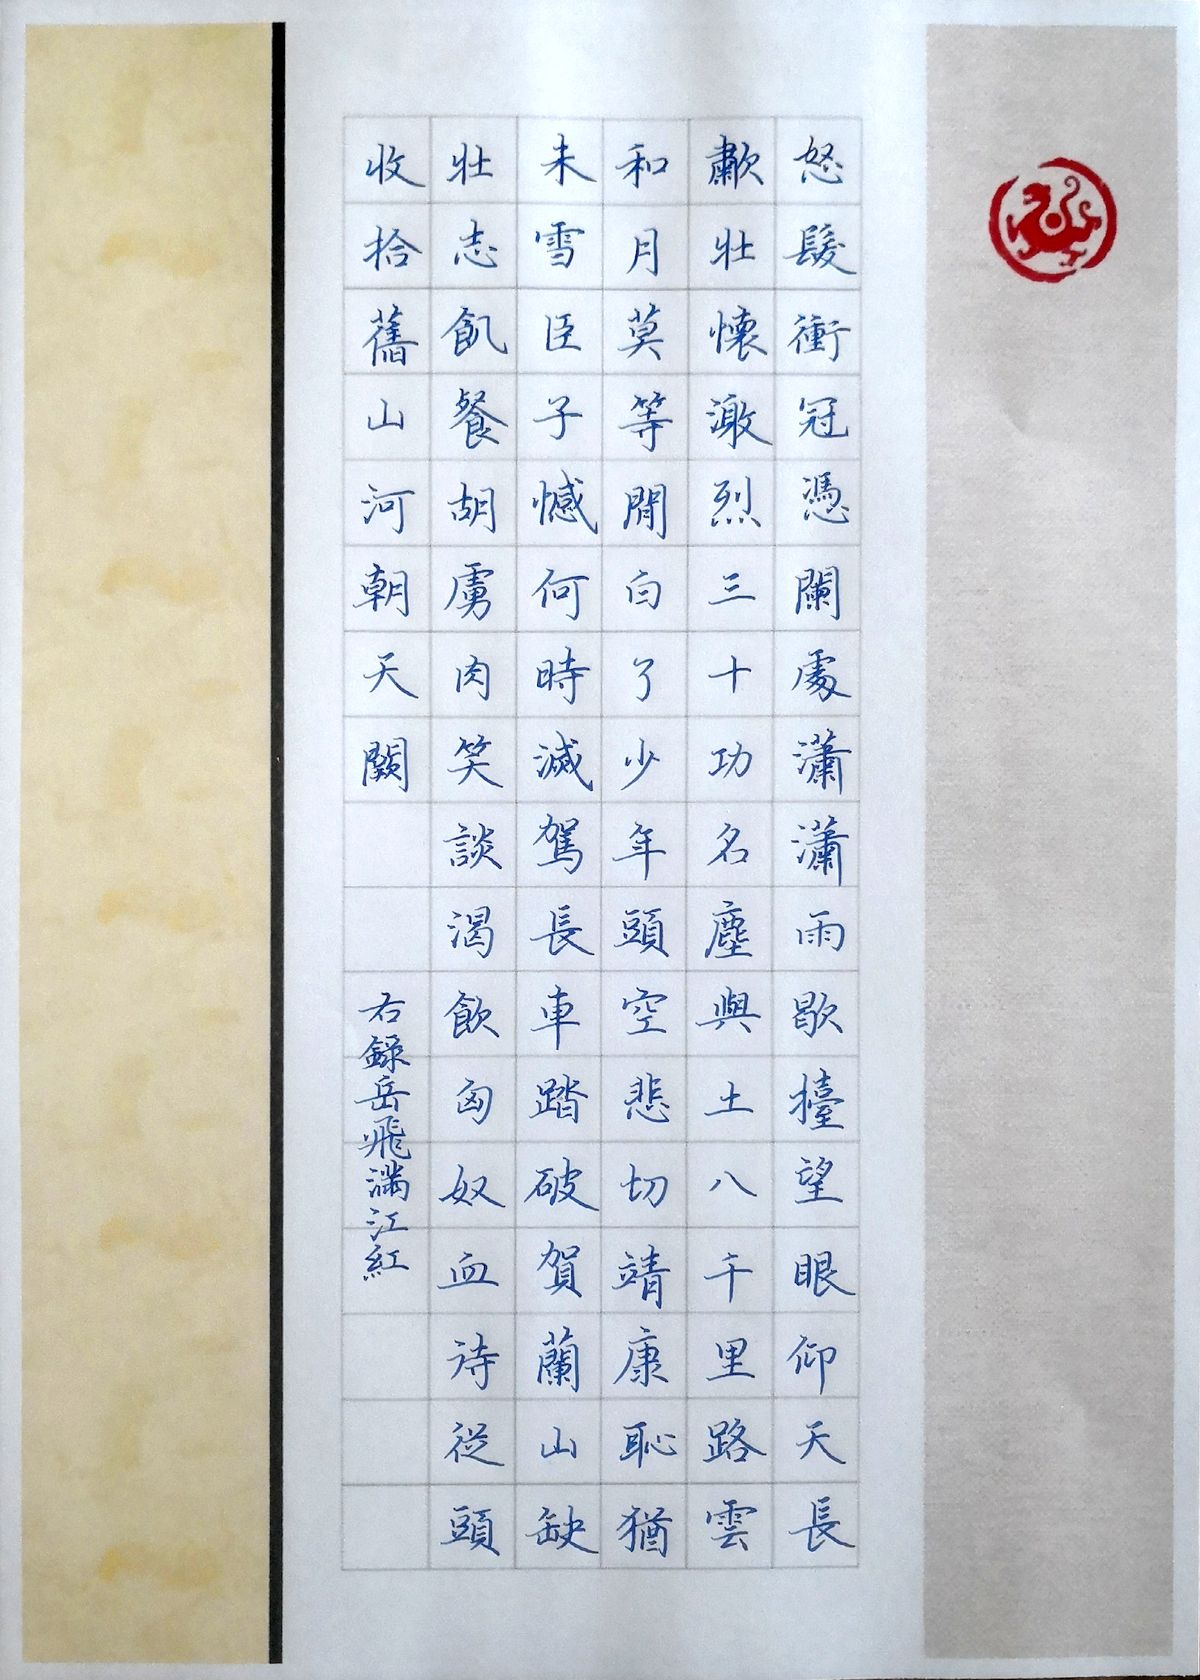 怒髮衝冠憑闌處瀟瀟雨歇擡望眼仰天長
歗壯懷激烈三十功名塵與土八千里路雲
和月莫等閒白了少年頭空悲切靖康恥猶
未雪臣子憾何時滅駕長車踏破賀蘭山缺
壯志飢餐胡虜肉笑談渴飲匈奴血待從頭
收拾舊山河朝天闕
右錄岳飛滿江紅